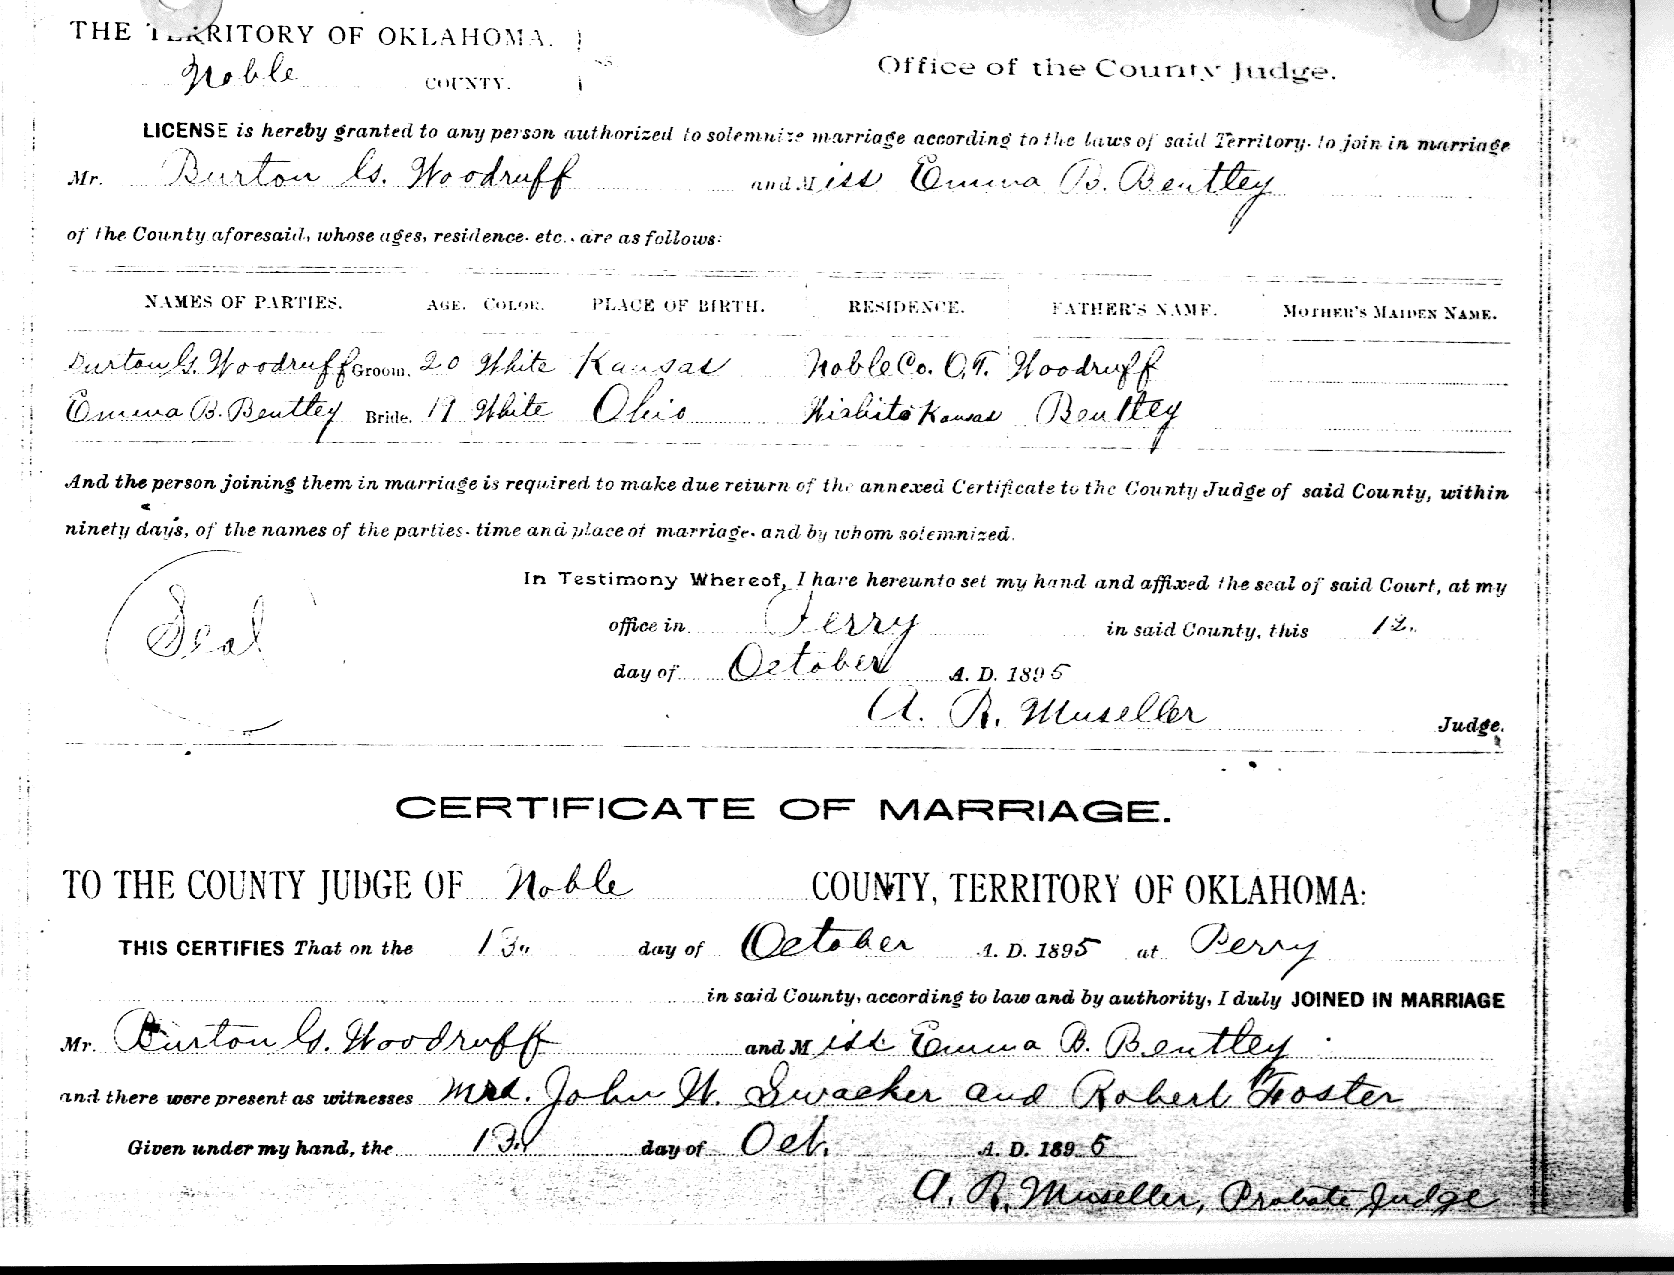 THE TERRITORY OF OKLAHOMA.
Noble COUNTY.
Office of the County Judge.
LICENSE is hereby granted to any person authorized to solemnize marriage according to the laws of said Territory. to join in marriage
Mr. Burton G. Woodruff and Miss Emma B. Bentley
of the County aforesaid, whose ages, residence. etc., are as follows:
NAMES OF PARTIES. AGE. COLOR. PLACE OF BIRTH. RESIDENCE. FATHER'S NAME. MOTHER'S MAIDEN NAME.
Burton G. Woodruff Groom. 20 White Kansas Noble Co. O.T. Woodruff
Emma B. Bentley Bride. 19 White Ohio Wichita Kansas Bentley
And the person joining them in marriage is required to make due return of the annexed Certificate to the County Judge of said County, within
ninety days, of the names of the parties. time and place of marriage. and by whom solemnized.
Seal
In Testimony Whereof, I have hereunto set my hand and affixed the seal of said Court, at my
office in Perry in said County, this 12.
day of October A. D. 1895
A. R. Museller Judge.
CERTIFICATE OF MARRIAGE.
TO THE COUNTY JUDGE OF Noble COUNTY, TERRITORY OF OKLAHOMA:
THIS CERTIFIES That on the 13. day of October A. D. 1895 at Perry
in said County, according to law and by authority, I duly JOINED IN MARRIAGE
Mr. Burton G. Woodruff and Miss Emma B. Bentley
and there were present as witnesses Mrs. John W. Swacker and Robert Foster
Given under my hand, the 13. day of Oct. A. D. 1895
A. R. Museller, Probate Judge